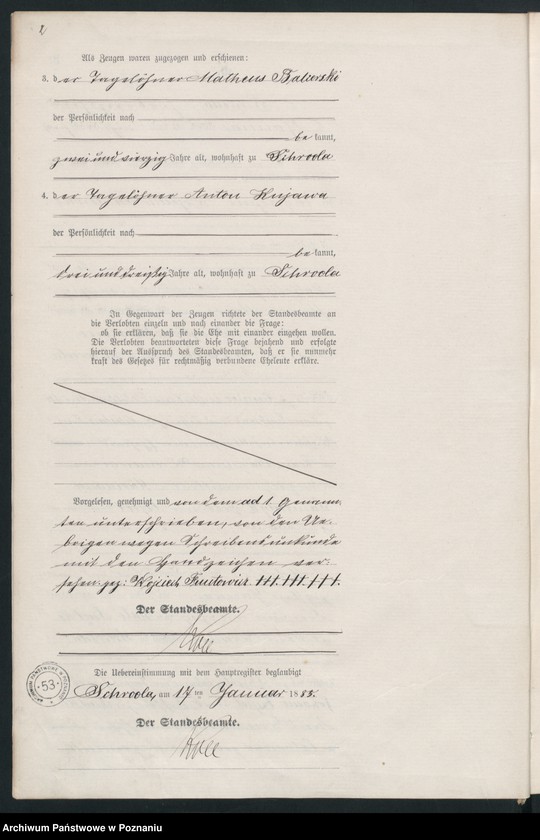 2
Als Zeugen waren zugezogen und erschienen:
3. der Tagelöhner Matheus
der Persönlichkeit nach
be kannt,
zwei und vierzig Jahre alt, wohnhaft zu Schroda
4. der Tagelöhner Anton Kujawa
der Persönlichkeit nach
be kannt,
drei und dreißig Jahre alt, wohnhaft zu Schroda
In Gegenwart der Zeugen richtete der Standesbeamte an
die Verlobten einzeln und nach einander die Frage:
ob sie erklären, daß sie die Ehe mit einander eingehen wollen.
Die Verlobten beantworteten diese Frage bejahend und erfolgte
hierauf der Ausspruch des Standesbeamten, daß er sie nunmehr
kraft des Gesetzes für rechtmäßig verbundene Eheleute erkläre.
Vorgelesen, genehmigt und von dem ad 1. Genann-
ten unterschrieben, von den Ue-
brigen wegen Schreibensunkunde
mit den Handzeichen ver-
sehen. gez: +++. +++. +++.
Der Standesbeamte.
Die Uebereinstimmung mit dem Hauptregister beglaubigt
Schroda, am 17 ten Januar 1885.
Der Standesbeamte.
53
Archiwum Państwowe w Poznaniu